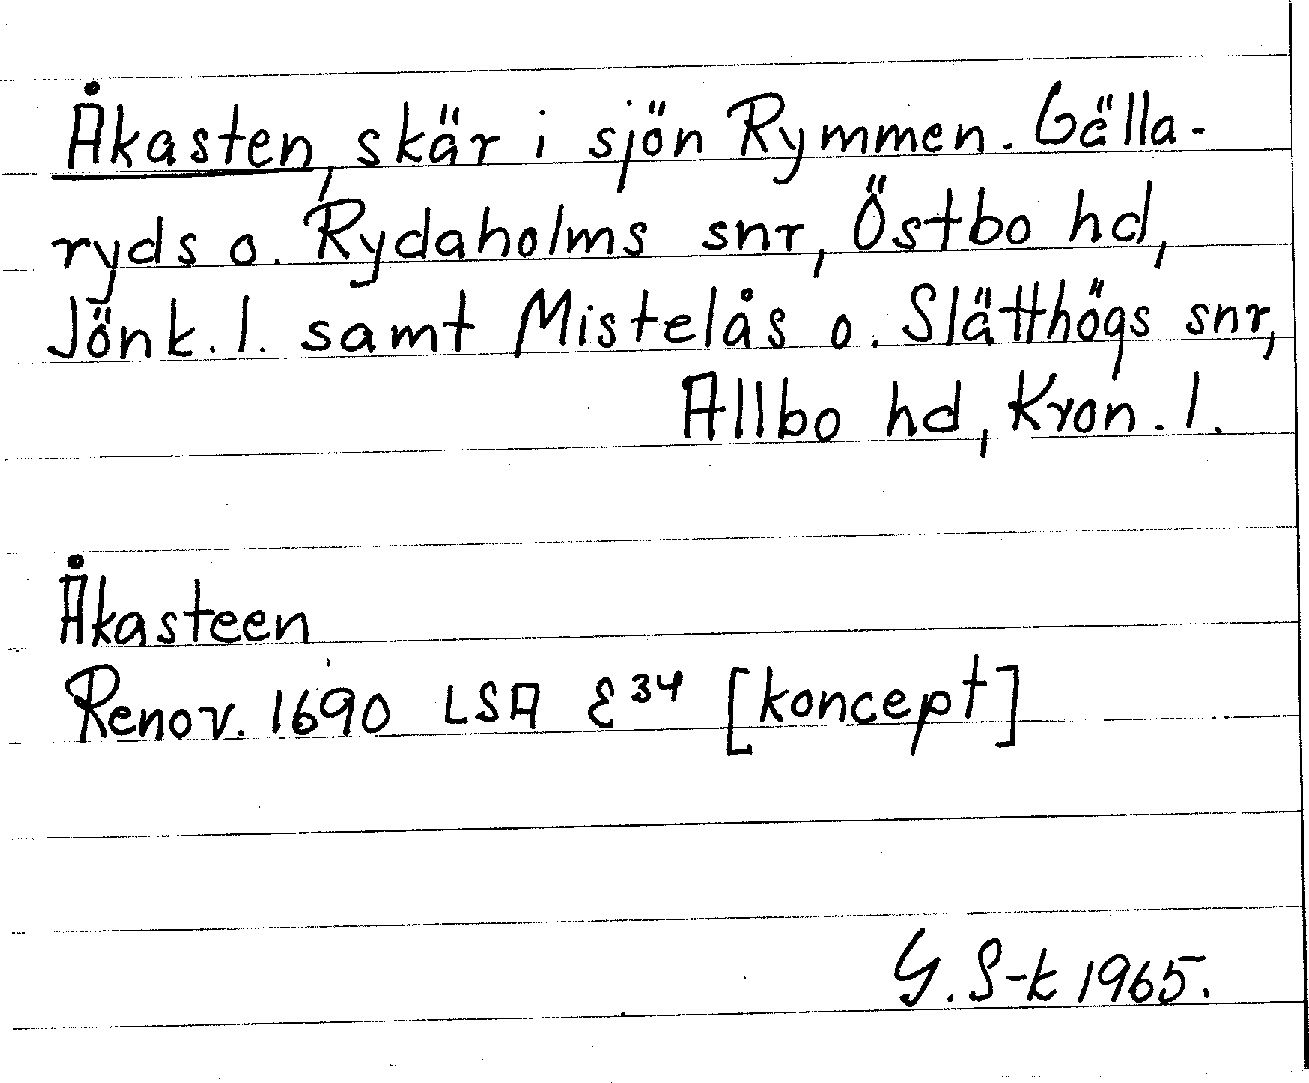 Åkasten, skär i sjön Rymmen. Gälla-
ryds o. Rydaholms snr, Östbo hd,
Jönk. l. samt Mistelås o. Slätthögs snr,
Allbo hd, Kron. l.
Åkasteen
Renov. 1690 LSA E34 [koncept]
G. S-k 1965.